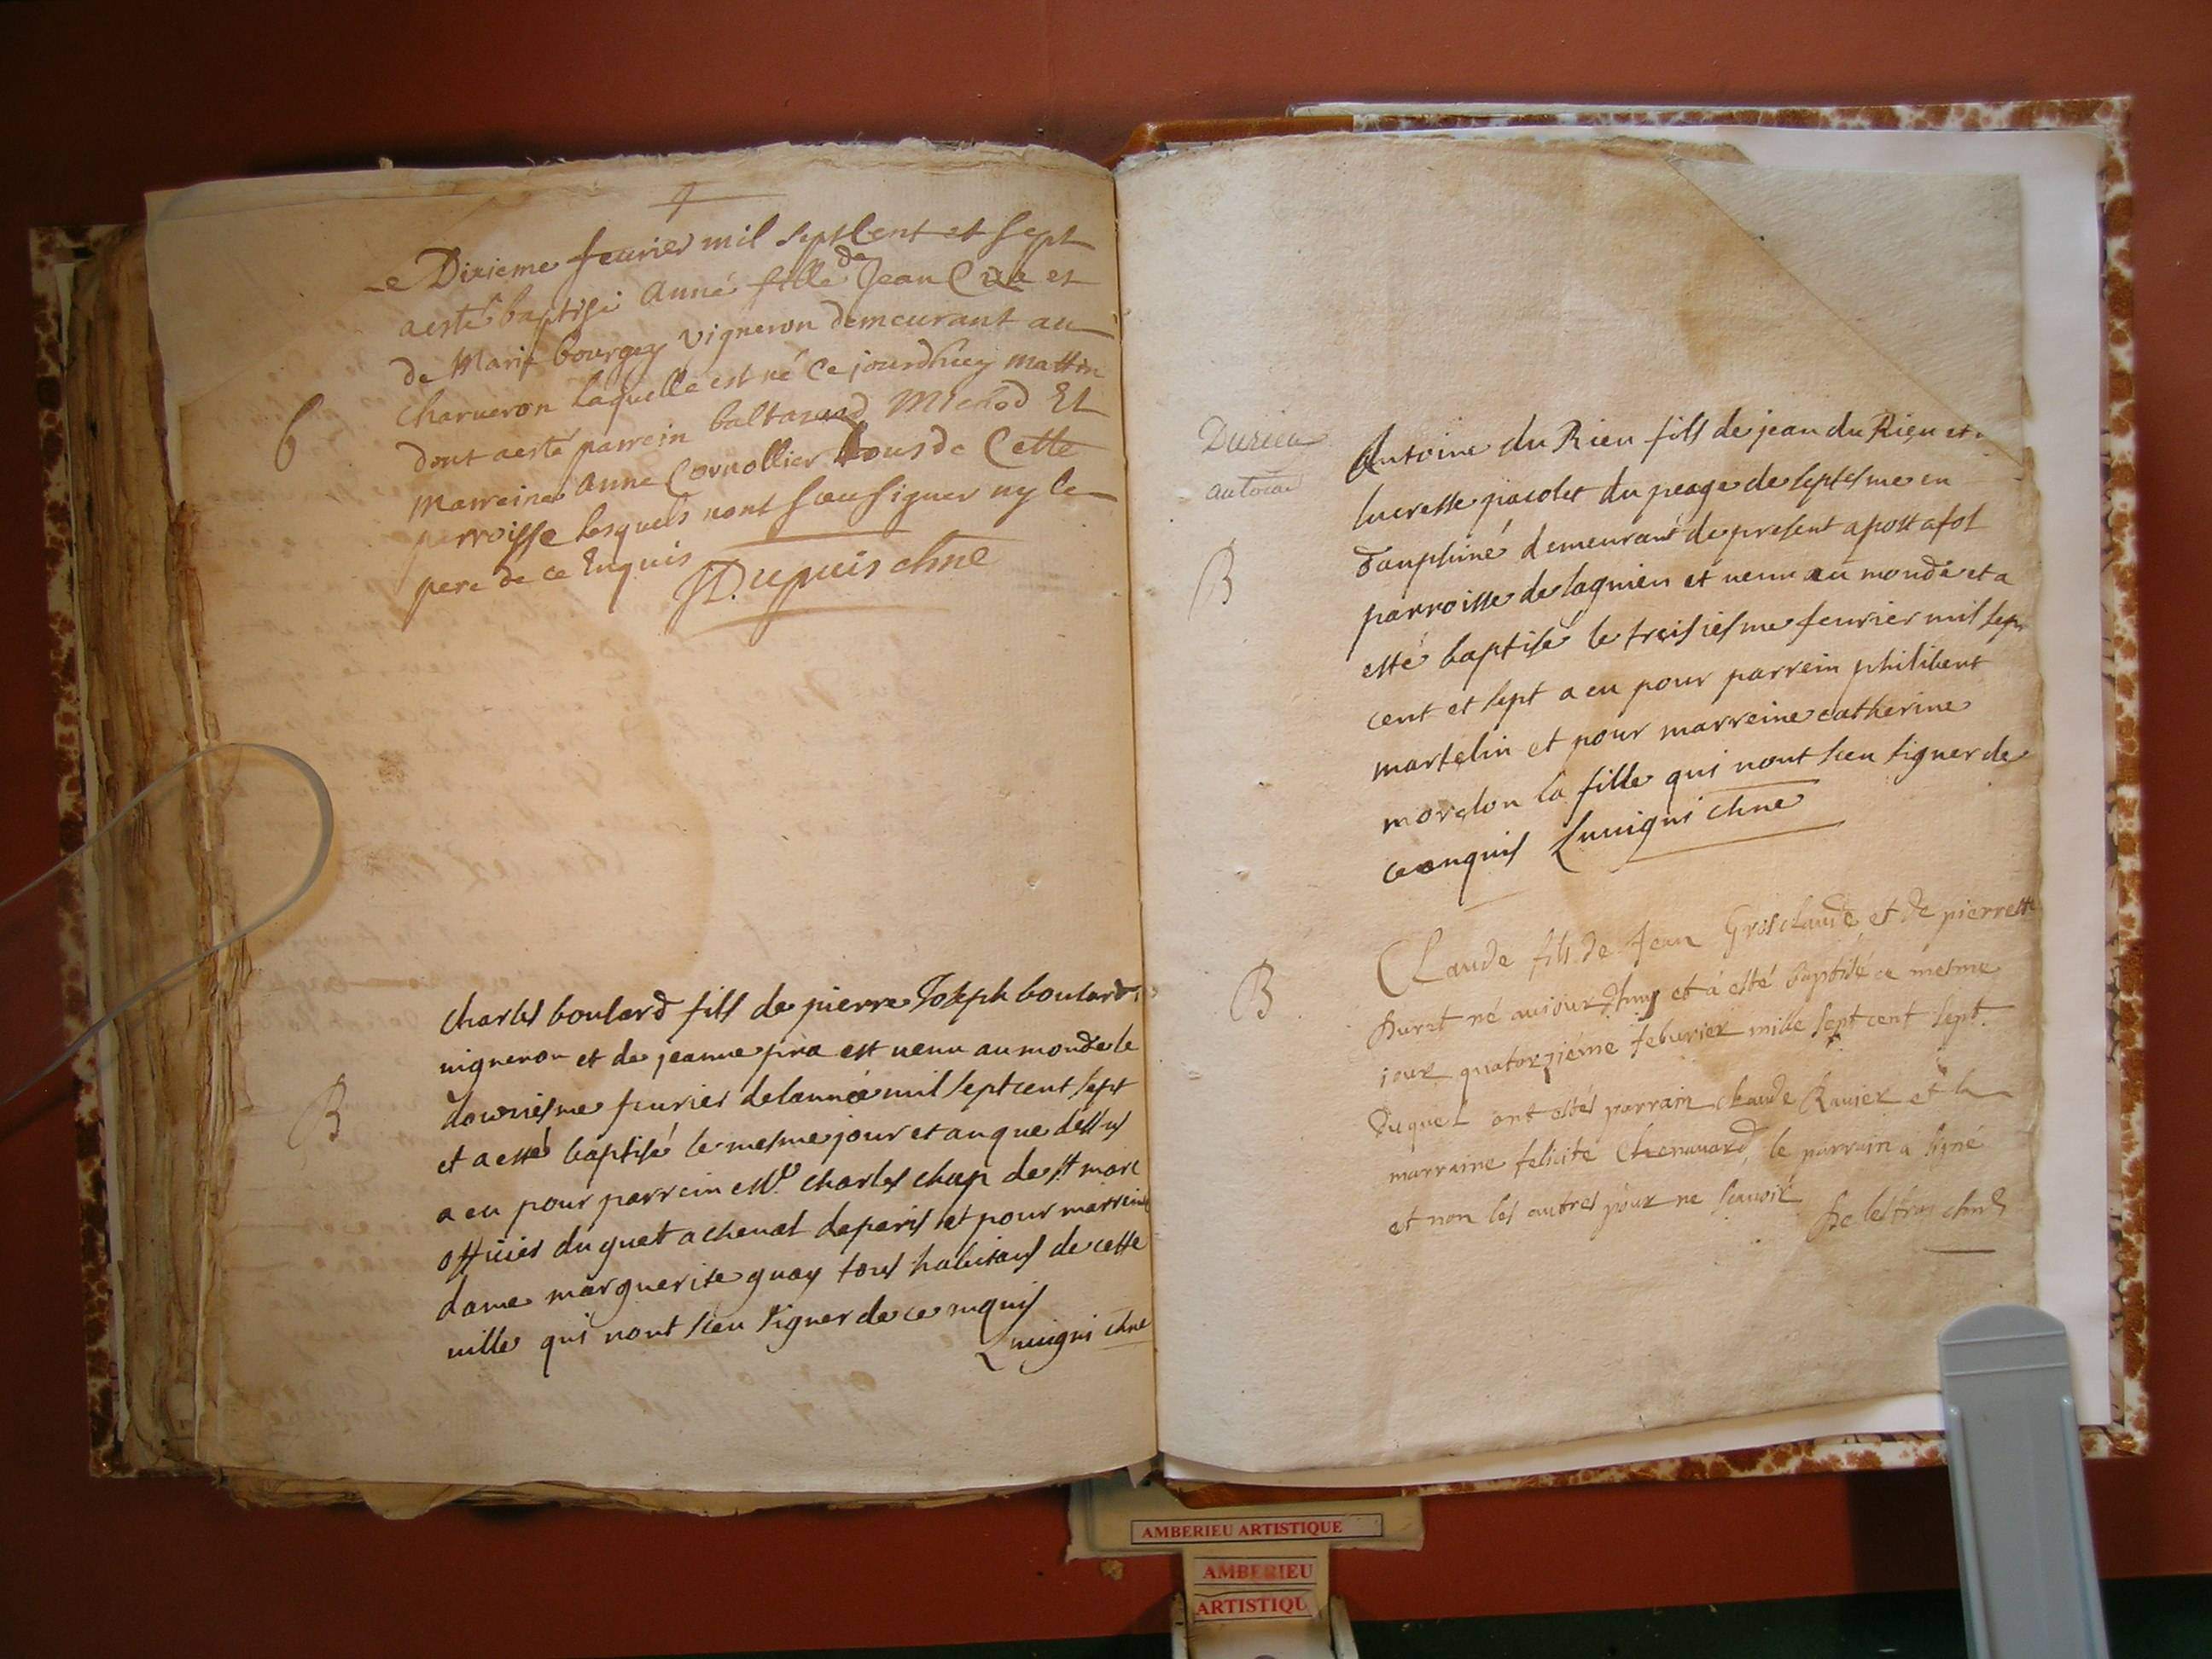 Le Dixieme feurier mil sept Cent et sept
a esté baptisé Anne fille de Jean et
de Marie bourgey vigneron demeurant au
charueron laquelle est né ce jourdhuy mattin
dont a esté parrein baltazard Michod Et
Marreine Anne Cornollier tous de Cette
parroisse lesquels nont sceu signer ny le
pere de ce Enquis
Dupuis chne
charles boulard fils de pierre Joseph boulard
uigneron et de jeanne pra est uenu au monde le
douziesme feurier de lannée mil sept cent sept
et a esté baptisé le mesme jour et an que dessus
a eu pour parrein charles chap de st marc
officier du guet a cheual de paris et pour marreine
dame marguerite guay tous habitans de cette
uille qui nont sceu signer de ce enquis
chne
B
Durieu
antoine
B
Antoine du Rieu fils de jean du Rieu et
lucresse pacolet du peage de septesme en
dauphiné demeurant de present a post afol
parroisse de lagnieu et uenu au monde et a
esté baptisé le treisiesme feurier mil sept
cent et sept a eu pour parrein philibert
martelin et pour marreine catherine
morelon la fille qui nont sceu signer de
ce enquis chne
B
Claude fils de Jean Grosclaude et de pierrette
huret né auiourdhuy et à esté baptisé ce mesme
iour quatorzieme feburier mille sept cent sept.
Duquel ont estés parrain claude Rauier et la
marraine felicité Chenauard, le parrain a signé
et non les autres pour ne scauoir
chne
AMBERIEU ARTISTIQUE
AMBERIEU
ARTISTIQU